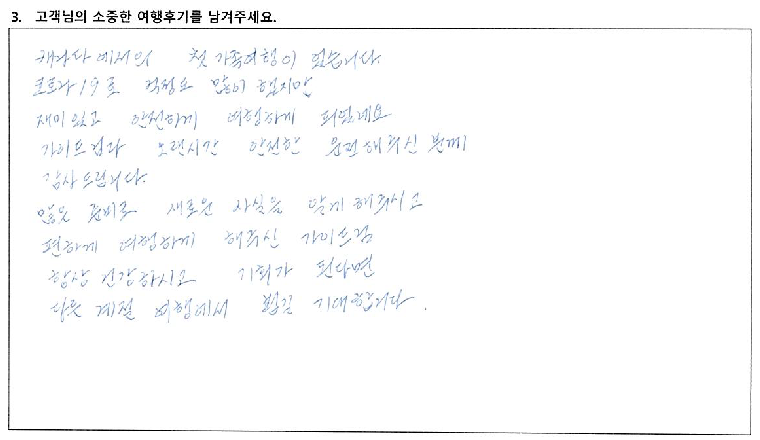 3. 고객님의 소중한 여행후기를 남겨주세요.
캐나다에서의 첫 가족여행이 었습니다.
코로나 19로 걱정도 많이 했지만
재미있고 안전하게 여행하게 되었네요
가이드님과 오랜시간 안전한 운전해주신 분께
감사드립니다.
많은 준비로 새로운 사실을 알게 해주시고
편하게 여행하게 해주신 가이드님
항상 건강하시고 기회가 된다면
다른 계절 여행에서 뵙길 기대합니다.